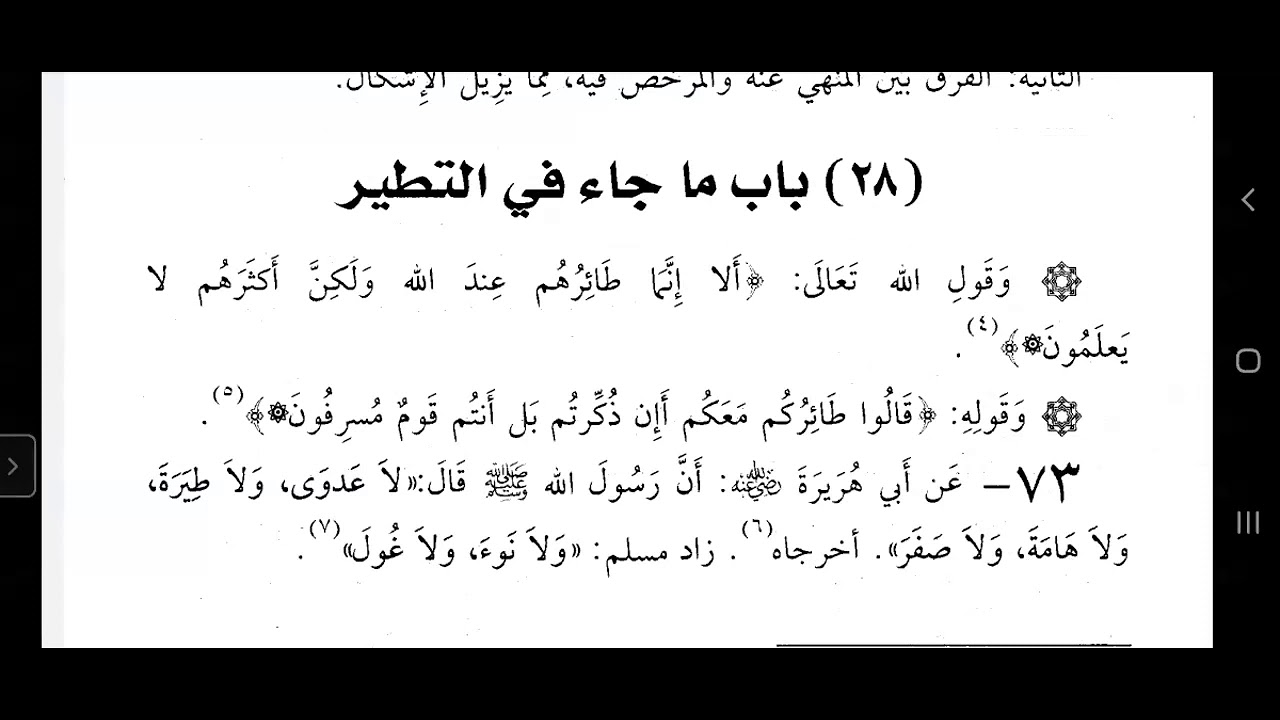 الثانية: الفرق بين المنهي عنه والمرخص فيه، مِمَّا يزِيلُ الإِشكال.
(٢٨) باب ما جاء في التطير
وَقَولِ الله تَعَالَى: ﴿أَلا إِنَّمَا طَائِرُهُم عِندَ الله وَلَكِنَّ أَكثَرَهُم لا
يَعلَمُونَ﴾(٤).
وَقَولِهِ: ﴿قَالُوا طَائِرُكُم مَعَكُم أَإِن ذُكِّرتُم بَل أَنتُم قَومٌ مُسرِفُونَ﴾(٥).
٧٣- عَن أَبي هُرَيرَةَ رضي الله عنه: أَنَّ رَسُولَ الله ﷺ قَالَ:«لاَ عَدوَى، وَلاَ طِيَرَةَ،
وَلاَ هَامَةَ، وَلاَ صَفَرَ». أخرجاه(٦). زاد مسلم: «وَلاَ نَوءَ، وَلاَ غُولَ»(٧).